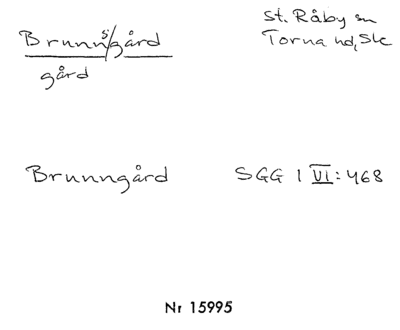 Brunns/gård
gård
St. Råby sn
Torna hd, Ske
Brunngård
SGG 1 VI: 468
Nr 15995